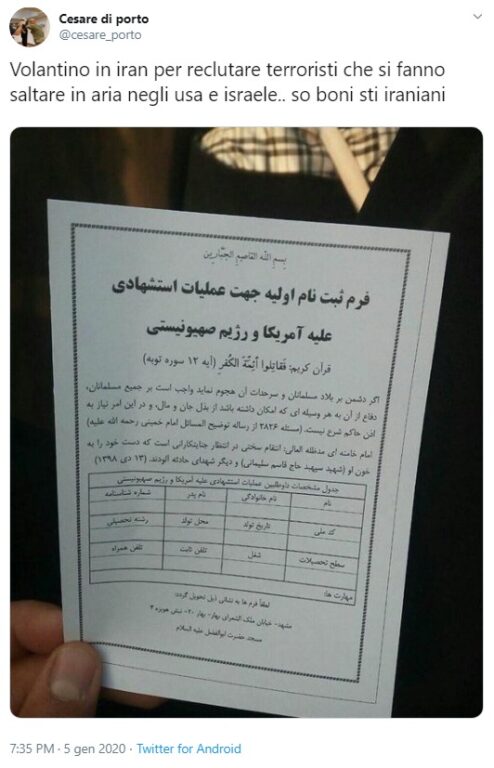 Cesare di porto
@cesare_porto
Volantino in iran per reclutare terroristi che si fanno
saltare in aria negli usa e israele.. so boni sti iraniani
بسم الله القاصم الجبارین
فرم ثبت نام اولیه جهت عملیات استشهادی
علیه آمریکا و رژیم صهیونیستی
قرآن کریم: فَقَاتِلُوا أَئِمَّةَ الْكُفْرِ (آیه ۱۲ سوره توبه)
اگر دشمن بر بلاد مسلمانان و سرحدات آن هجوم نماید واجب است بر جمیع مسلمانان،
دفاع از آن به هر وسیله ای که امکان داشته باشد از بذل جان و مال، و در این امر نیاز به
اذن حاکم شرع نیست. (مسئله ۲۸۲۶ از رساله توضیح المسائل امام خمینی رحمه الله علیه)
امام خامنه ای مدظله العالی: انتقام سختی در انتظار جنایتکارانی است که دست خود را به
خون او (شهید سپهبد حاج قاسم سلیمانی) و دیگر شهدای حادثه آلودند. (۱۳ دی ۱۳۹۸)
جدول مشخصات داوطلبین عملیات استشهادی علیه آمریکا و رژیم صهیونیستی
نام نام خانوادگی نام پدر شماره شناسنامه
کد ملی تاریخ تولد محل تولد رشته تحصیلی
سطح تحصیلات شغل تلفن ثابت تلفن همراه
مهارت ها:
لطفاً فرم ها به نشانی ذیل تحویل گردد:
مشهد- خیابان ملک الشعرای بهار- بهار ۲۰- نبش هویزه ۳
مسجد حضرت ابوالفضل علیه السلام
7:35 PM · 5 gen 2020 · Twitter for Android